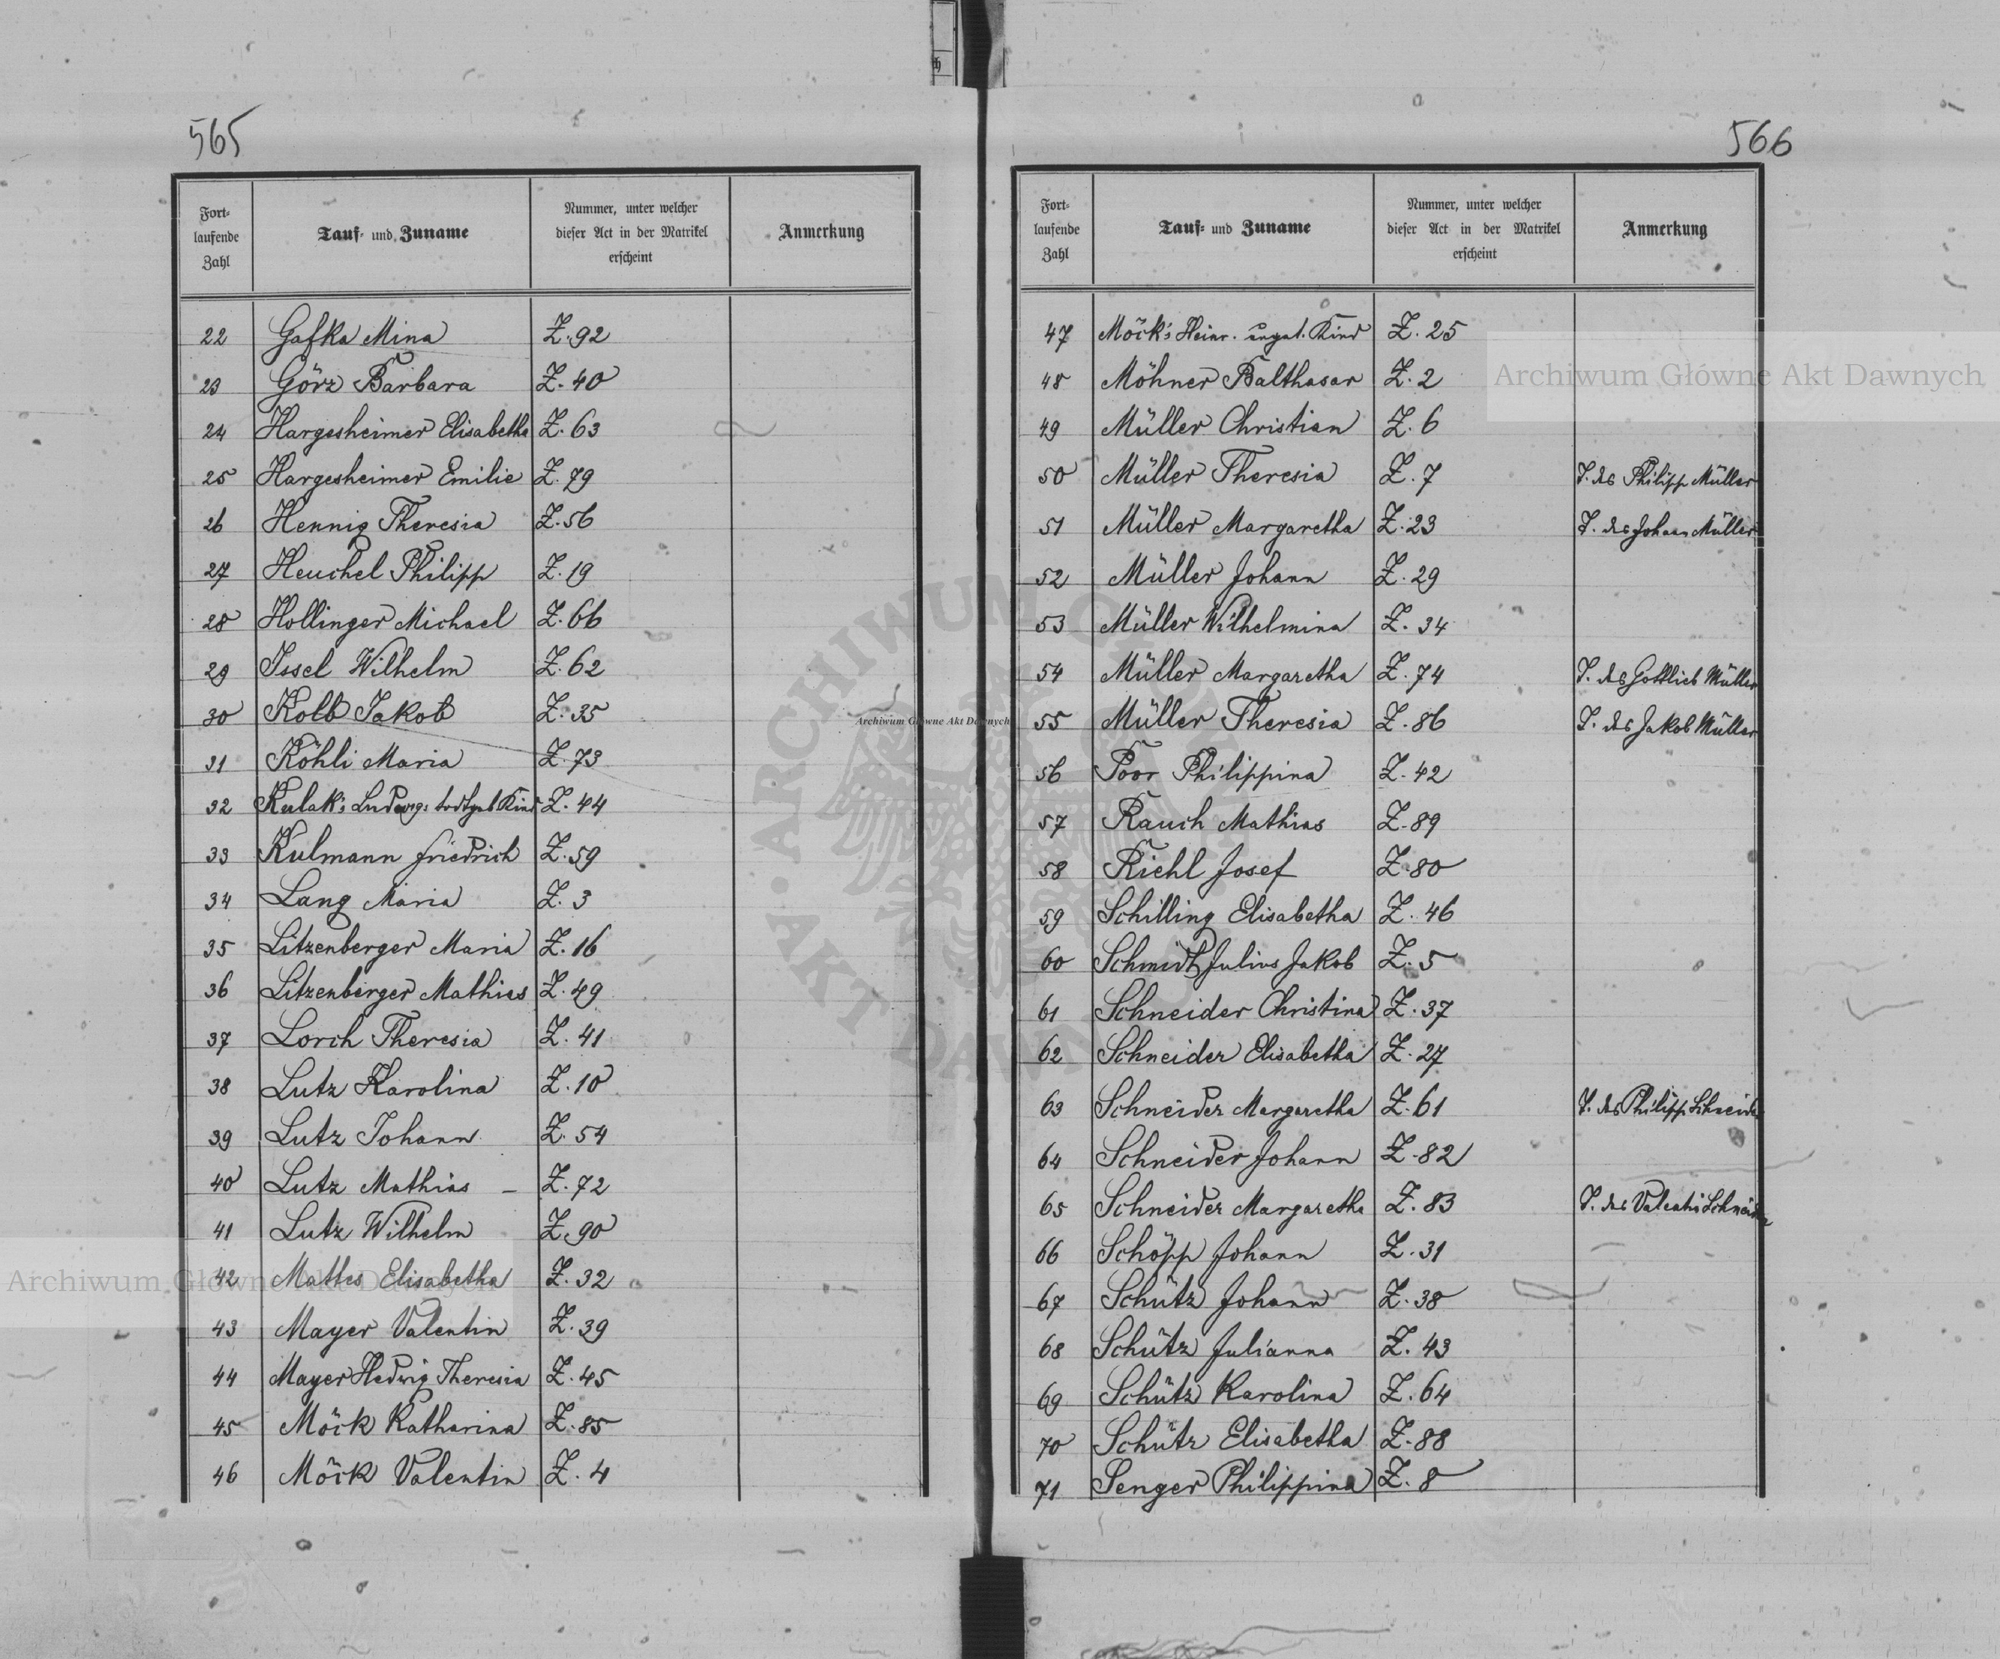 565
Fort-laufende Zahl | Tauf- und Zuname | Nummer, unter welcher dieser Act in der Matrikel erscheint | Anmerkung
22 Gafka Mina Z. 92
23 Görz Barbara Z. 40
24 Hargesheimer Elisabetha Z. 63
25 Hargesheimer Emilie Z. 79
26 Hennig Theresia Z. 56
27 Heuchel Philipp Z. 19
28 Hollinger Michael Z. 66
29 Issel Wilhelm Z. 62
30 Kolb Jakob Z. 35
31 Köhli Maria Z. 73
32 Kulak's Ludwig: todtgeb. Kind Z. 44
33 Kulmann Friedrich Z. 59
34 Lang Maria Z. 3
35 Litzenberger Maria Z. 16
36 Litzenberger Mathias Z. 49
37 Lorch Theresia Z. 41
38 Lutz Karolina Z. 10
39 Lutz Johann Z. 54
40 Lutz Mathias – Z. 72
41 Lutz Wilhelm Z. 90
42 Mattes Elisabetha Z. 32
43 Mayer Valentin Z. 39
44 Mayer Hedwig Theresia Z. 45
45 Möck Katharina Z. 85
46 Möck Valentin Z. 4
566
Fort-laufende Zahl | Tauf- und Zuname | Nummer, unter welcher dieser Act in der Matrikel erscheint | Anmerkung
47 Möck's Heinr. unget. Kind Z. 25
48 Möhner Balthasar Z. 2
49 Müller Christian Z. 6
50 Müller Theresia Z. 7 T. des Philipp Müller
51 Müller Margaretha Z. 23 T. des Johann Müller
52 Müller Johann Z. 29
53 Müller Wilhelmina Z. 34
54 Müller Margaretha Z. 74 T. des Gottlieb Müller
55 Müller Theresia Z. 86 T. des Jakob Müller
56 Poor Philippina Z. 42
57 Rauch Mathias Z. 89
58 Riehl Josef Z. 80
59 Schilling Elisabetha Z. 46
60 Schmidt Julius Jakob Z. 5
61 Schneider Christina Z. 37
62 Schneider Elisabetha Z. 27
63 Schneider Margaretha Z. 61 T. des Philipp Schneider
64 Schneider Johann Z. 82
65 Schneider Margaretha Z. 83 T. des Valentin Schneider
66 Schöpp Johann Z. 31
67 Schütz Johann Z. 38
68 Schütz Julianna Z. 43
69 Schütz Karolina Z. 64
70 Schütz Elisabetha Z. 88
71 Senger Philippina Z. 8
Archiwum Główne Akt Dawnych
Archiwum Główne Akt Dawnych
Archiwum Główne Akt Dawnych
ARCHIWUM GŁÓWNE · AKT DAWNYCH